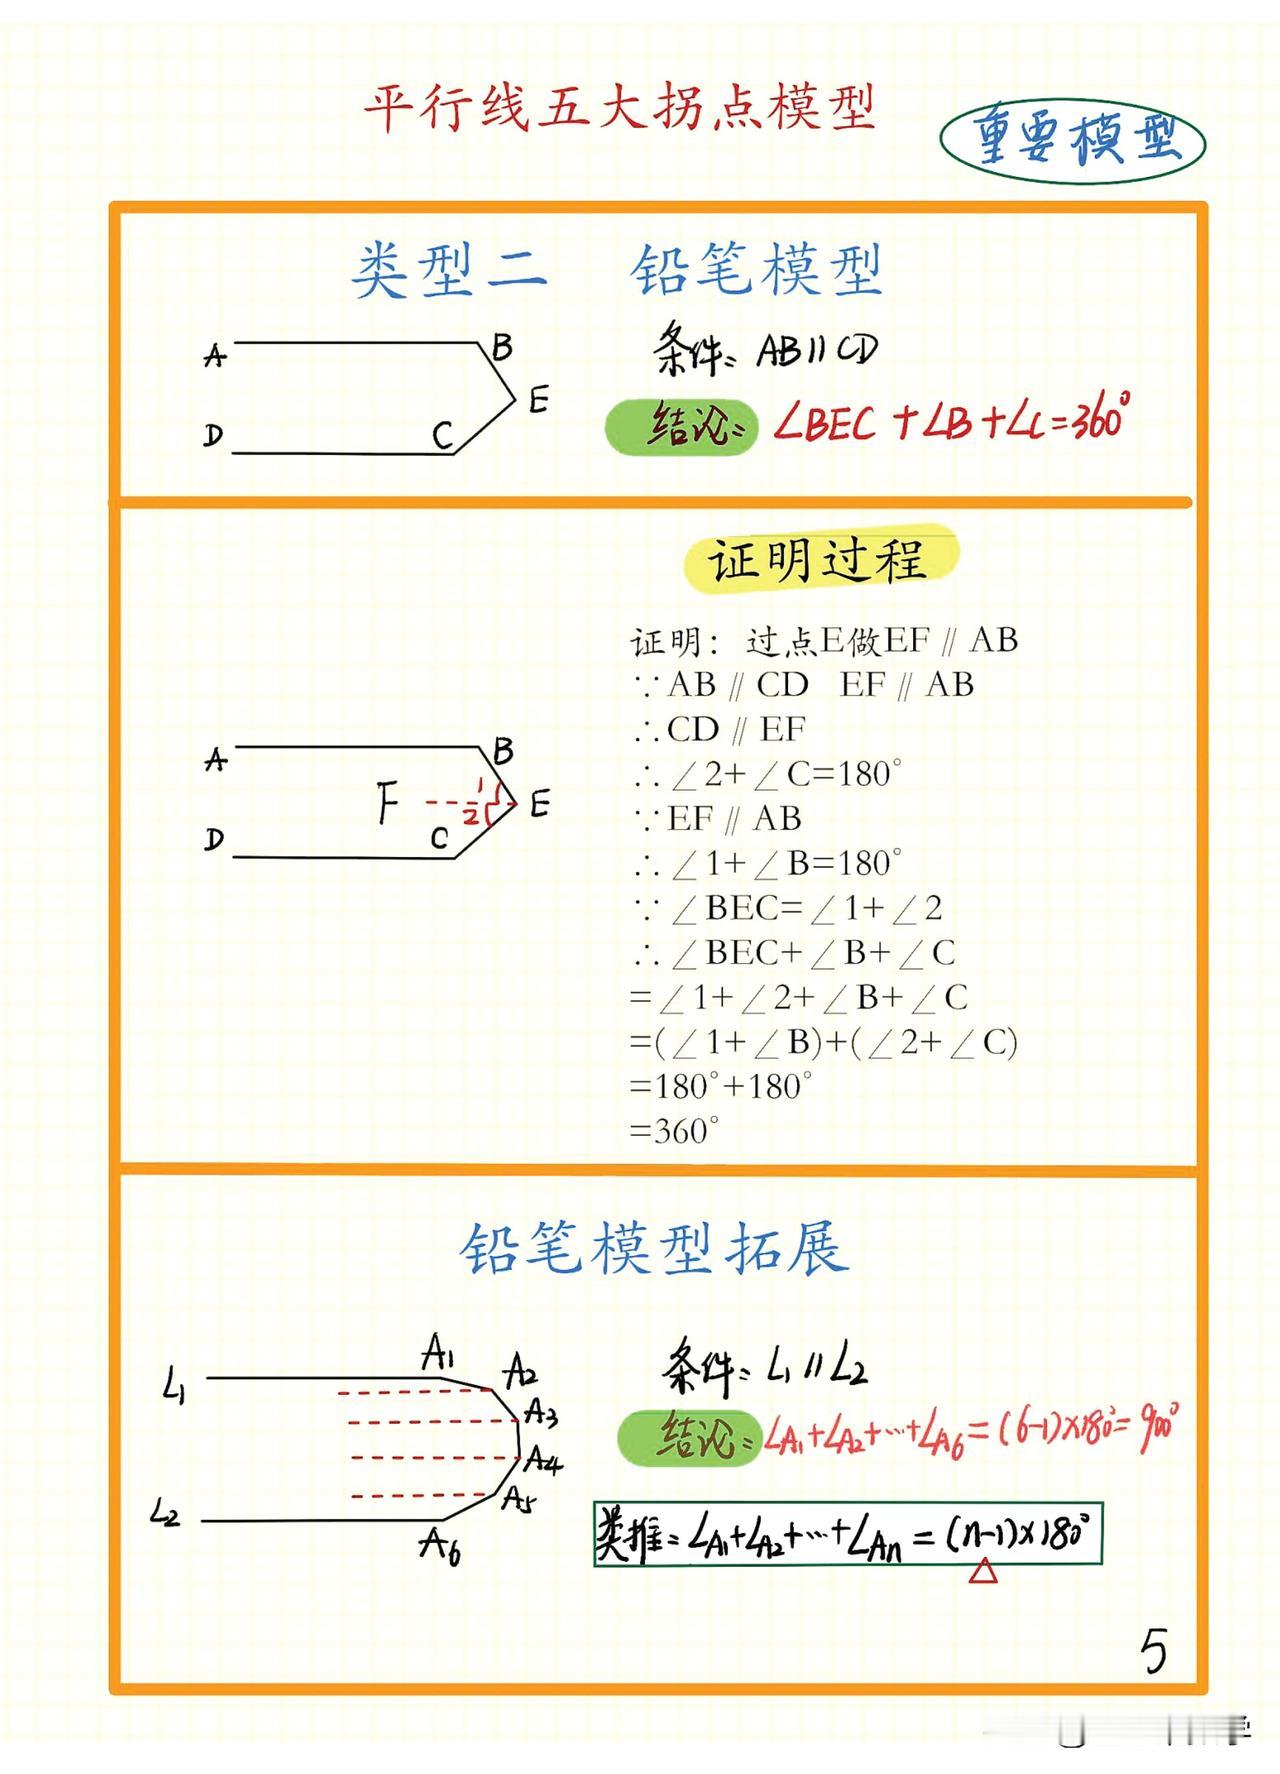 平行线五大拐点模型
重要模型
类型二 铅笔模型
A B
E
D C
条件: AB∥CD
结论: ∠BEC+∠B+∠C=360°
证明过程
证明: 过点E做EF∥AB
∵AB∥CD EF∥AB
∴CD∥EF
∴∠2+∠C=180°
∵EF∥AB
∴∠1+∠B=180°
∵∠BEC=∠1+∠2
∴∠BEC+∠B+∠C
=∠1+∠2+∠B+∠C
=(∠1+∠B)+(∠2+∠C)
=180°+180°
=360°
A B
F 1 E
2
D C
铅笔模型拓展
L1 A1 A2
A3
A4
L2 A5
A6
条件: L1∥L2
结论: ∠A1+∠A2+…+∠A6=(6-1)×180°=900°
类推: ∠A1+∠A2+…+∠An=(n-1)×180°
5